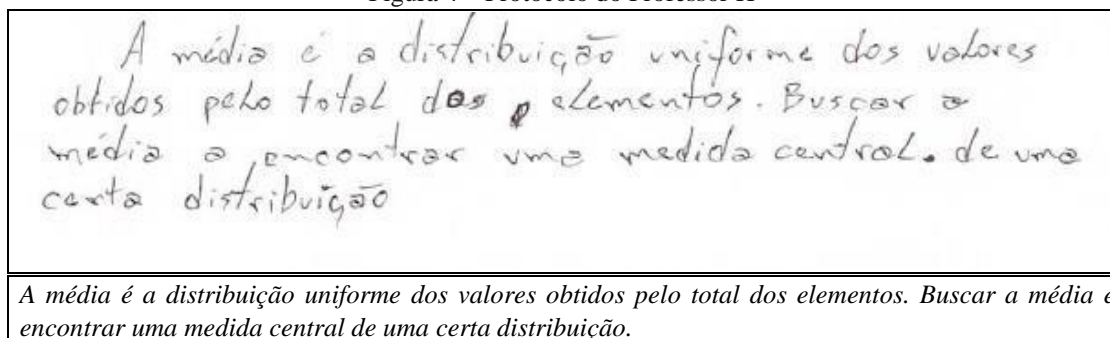 A média é a distribuição uniforme dos valores
obtidos pelo total dos elementos. Buscar a
média a encontrar uma medida central. de uma
certa distribuição
A média é a distribuição uniforme dos valores obtidos pelo total dos elementos. Buscar a média é
encontrar uma medida central de uma certa distribuição.